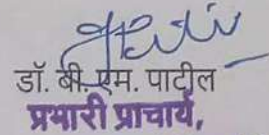 डॉ. बी.एम. पाटील
प्रभारी प्राचार्य,